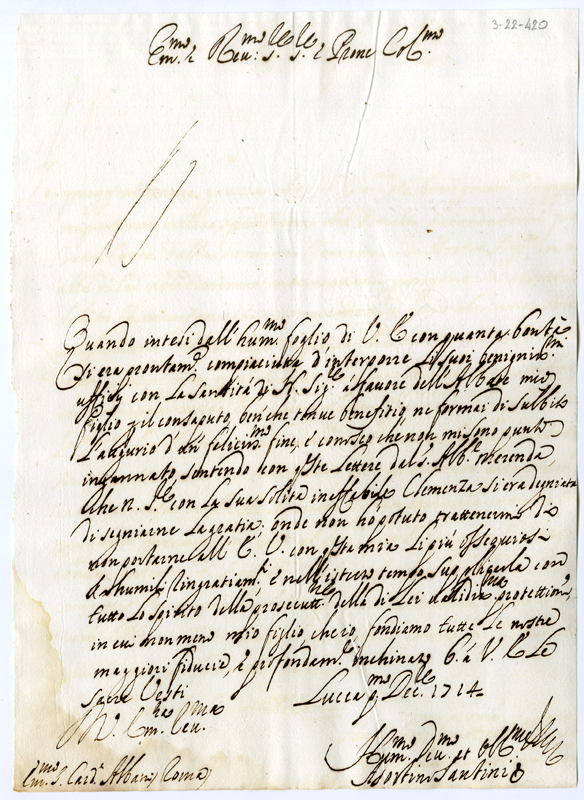 3-22-420
Em.mo e Reu.mo S.re S.re e Prone Col.mo
Quando intesi dall'hum.mo foglio di V. E. con quanta bontà
si era prontam.te compiaciuta d'interporre li suoi benignis.mi
uffizij con la Santità di N. Sig.re a favore dell'Abbate mio
figlio il consaputo, benche tenue benefitio, ne formai di subito
l'augurio d'un felicis.mo fine, e conosco che non mi sono punto
ingannato sentendo con q.ste lettere dal S. Abb.e Merenda,
che N. S.re con la sua solita ineffabile Clemenza si era degniata
di segniarne la gratia, onde non ho potuto trattenermi di
non portarne all' E. V. con q.sta mia li più ossequiosi
& humili ringratiam.ti e nell'istesso tempo supplicarla con
tutto lo spirito della prosecut.ne della di Lei validis.ma protettione,
in cui non meno mio figlio che io, fondiamo tutte le nostre
maggiori fiducie, e profondam.te inchinato b. à V. E. le
Sacre Vesti
Lucca p.mo Dec.re 1714
V. Em. Reu.
Em.mo S. Card. Albani Roma
Hum.mo Deu.mo et Obb.mo
Santini